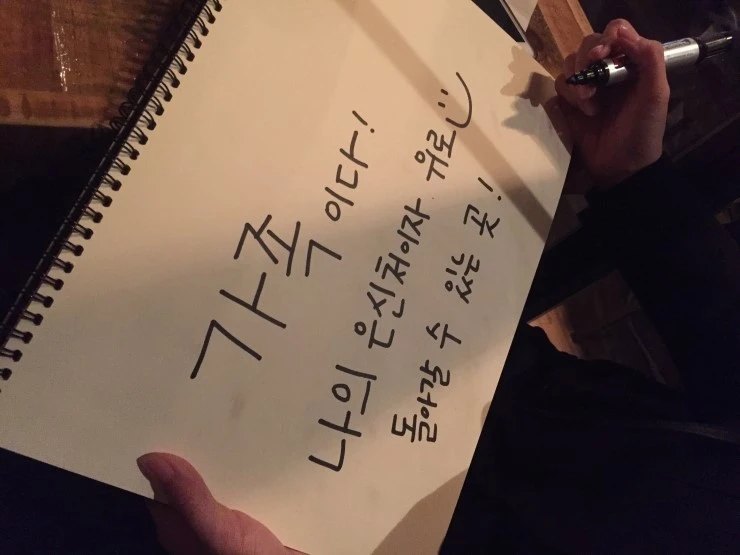 가족이다!
나의 은신처이자 위로
돌아갈 수 있는 곳!